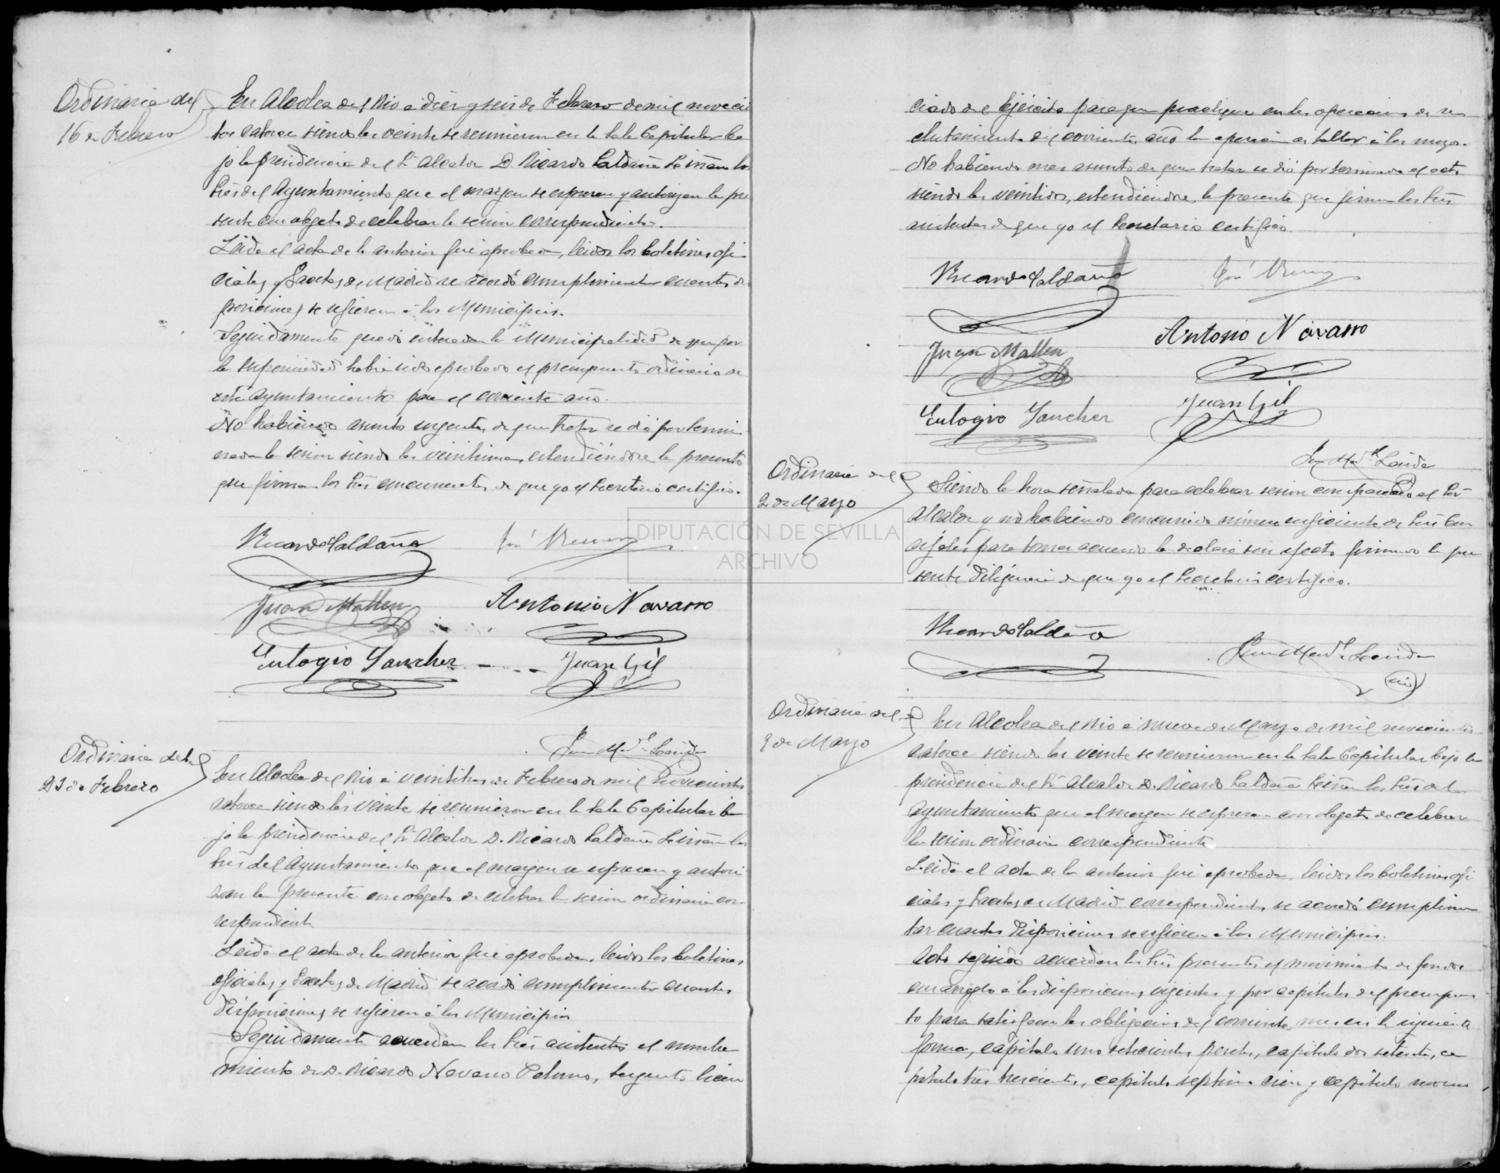 Ordinaria del
16 de Febrero
En Alcolea del Rio a diez y seis de Febrero de mil novecien
tos catorce siendo las veinte se reunieron en la Sala Capitular ba
jo la presidencia del Sr. Alcalde D. Ricardo Saldaña Liñan los
Sres del Ayuntamiento que al margen se expresan y autorizan la pre
sente con objeto de celebrar la sesion correspondiente.
Leida el acta de la anterior fué aprobada, leidos los boletines ofi
ciales y Gacetas de Madrid se acordó cumplimentar cuantas dis
posiciones se refieren á los Municipios.
Seguidamente quedó enterada la Municipalidad de que por
la Superioridad habia sido aprobado el presupuesto ordinario de
este Ayuntamiento para el corriente año.
No habiendo asunto urgente de que tratar se dió por termi
nada la sesion siendo las veintiuna, extendiéndose la presente
que firman los Sres concurrentes de que yo el Secretario certifico.
Ricardo Saldaña
Juan Mallen
Antonio Navarro
Eulogio Sanchez
Juan Gil
Ordinaria del
23 de Febrero
En Alcolea del Rio a veintitres de Febrero de mil novecientos
catorce siendo las veinte se reunieron en la Sala Capitular ba
jo la presidencia del Sr. Alcalde D. Ricardo Saldaña Liñan los
Sres del Ayuntamiento que al margen se expresan y autori
zan la presente con objeto de celebrar la sesion ordinaria cor
respondiente
Leida el acta de la anterior fué aprobada, leidos los boletines
oficiales y Gacetas de Madrid se acordó cumplimentar cuantas
disposiciones se refieren á los Municipios
Seguidamente acuerdan los Sres asistentes el nombra
miento de D. Ricardo Navarro Palomo, sargento licen
ciado del Ejército para que practique en las operaciones de re
clutamiento del corriente año la operacion de tallar á los mozos.
No habiendo mas asunto de que tratar se dió por terminado el acto
siendo las veintidos, extendiendose la presente que firman los Sres
asistentes de que yo el Secretario certifico.
Ricardo Saldaña
Antonio Navarro
Juan Mallen
Juan Gil
Eulogio Sanchez
Ordinaria del
2 de Marzo
Siendo la hora señalada para celebrar sesion compareció el Sr.
Alcalde y no habiendo concurrido número suficiente de Sres Con
cejales para tomar acuerdo la declaró sin efecto firmando la pre
sente diligencia de que yo el Secretario certifico.
Ricardo Saldaña
Ordinaria del
9 de Marzo
En Alcolea del Rio á nueve de Marzo de mil novecientos
catorce siendo las veinte se reunieron en la Sala Capitular bajo la
presidencia del Sr. Alcalde D. Ricardo Saldaña Liñan los Sres del
Ayuntamiento que al margen se expresan con objeto de celebrar
la sesion ordinaria correspondiente
Leida el acta de la anterior fué aprobada, leidos los boletines ofi
ciales y Gacetas de Madrid correspondientes se acordó cumplimen
tar cuantas disposiciones se refieren á los Municipios.
Acto seguido acuerdan los Sres presentes el movimiento de fondos
con arreglo á las disposiciones vigentes y por capitulos del presupues
to para satisfacer las obligaciones del corriente mes en la siguiente
forma, capitulo uno setecientas pesetas, capitulo dos setenta, ca
pitulo tres trescientas, capitulo septimo cien y capitulo noveno
DIPUTACIÓN DE SEVILLA
ARCHIVO